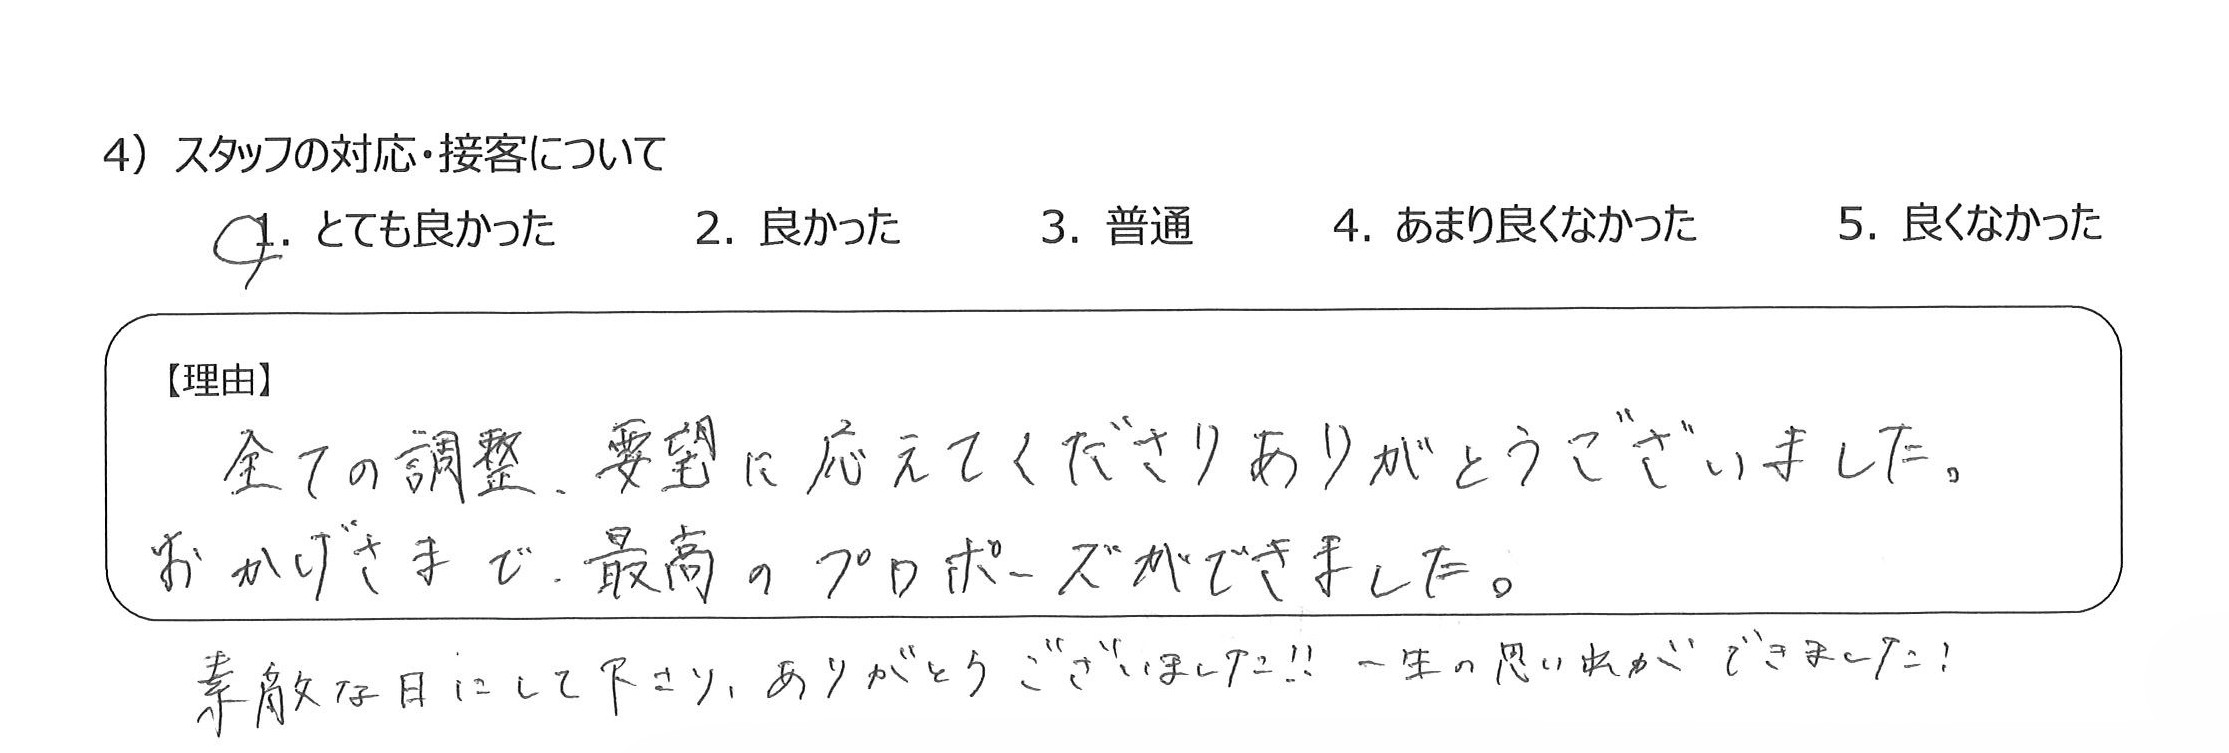 4）スタッフの対応・接客について
1. とても良かった 2. 良かった 3. 普通 4. あまり良くなかった 5. 良くなかった
【理由】
全ての調整、要望に応えてくださりありがとうございました。
おかげさまで、最高のプロポーズができました。
素敵な日にして下さり、ありがとうございました!! 一生の思い出ができました!